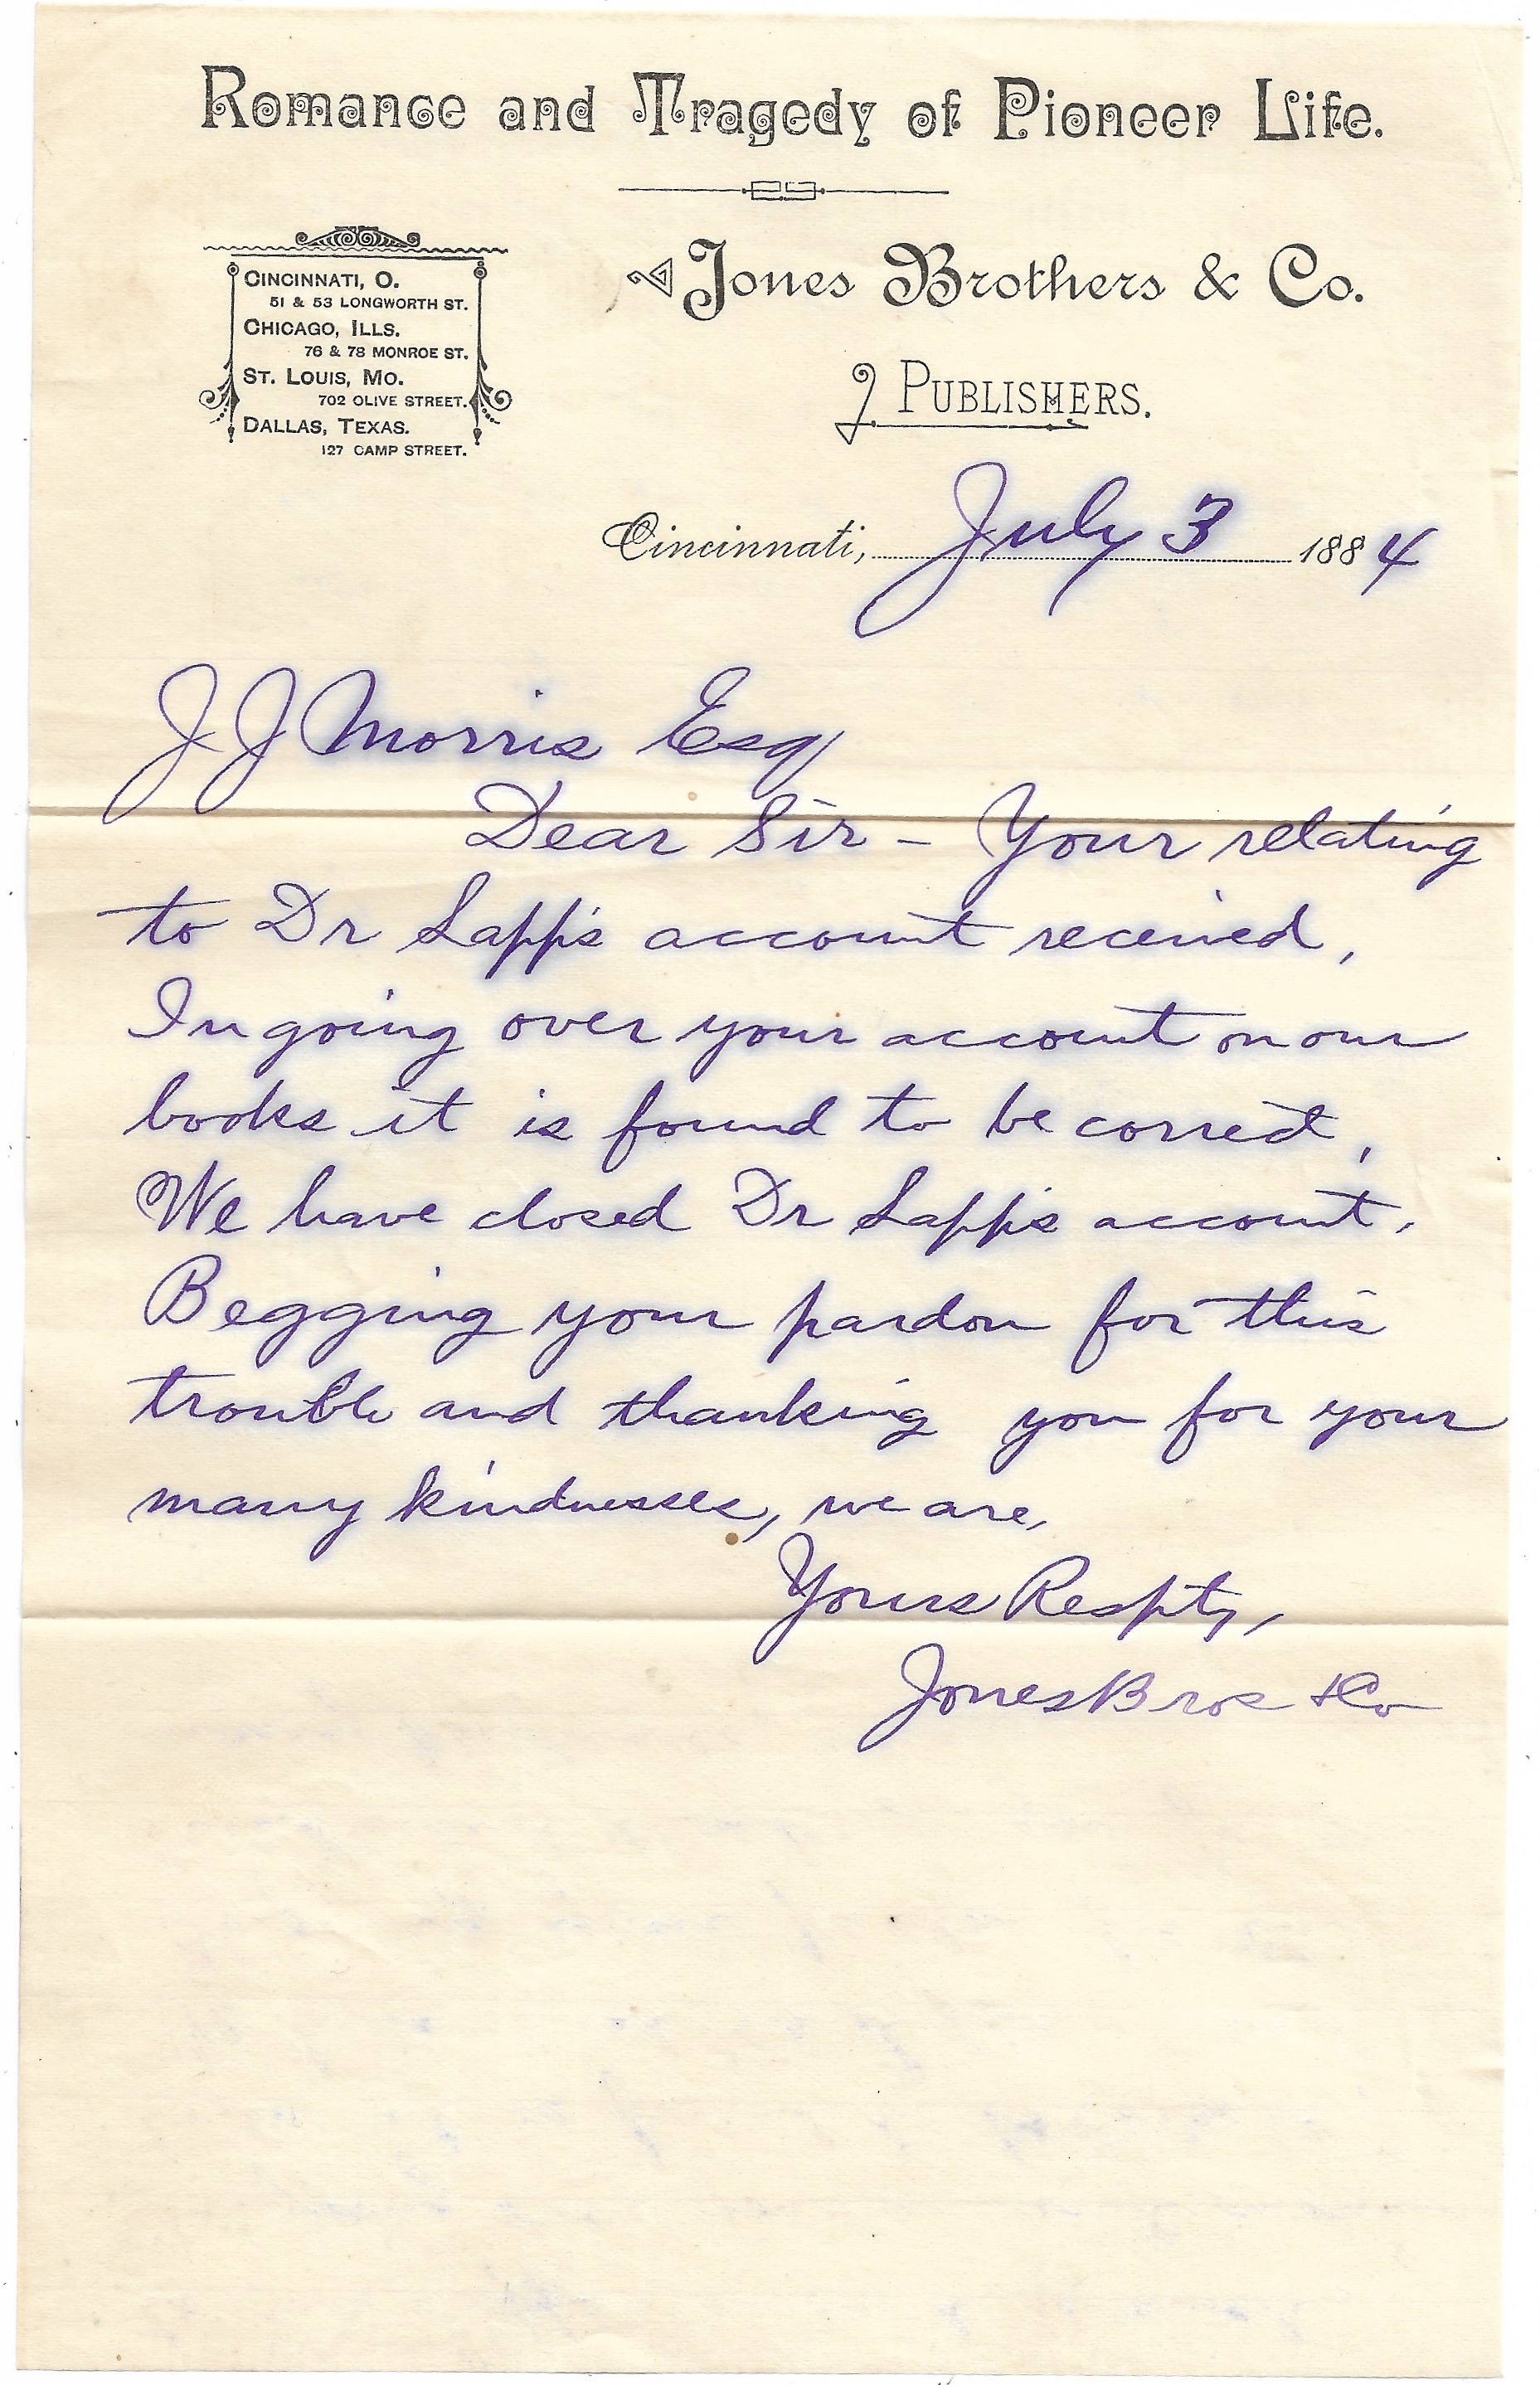 Romance and Tragedy of Pioneer Life.
CINCINNATI, O.
51 & 53 LONGWORTH ST.
CHICAGO, ILLS.
76 & 78 MONROE ST.
ST. LOUIS, MO.
702 OLIVE STREET.
DALLAS, TEXAS.
127 CAMP STREET.
Jones Brothers & Co.
PUBLISHERS.
Cincinnati, July 3 1884
J J Morris Esq
Dear Sir – Your relating
to Dr Lapp's account received,
In going over your account on our
books it is found to be correct,
We have closed Dr Lapp's account.
Begging your pardon for this
trouble and thanking you for your
many kindnesses, we are,
Yours Respty,
Jones Bros & Co